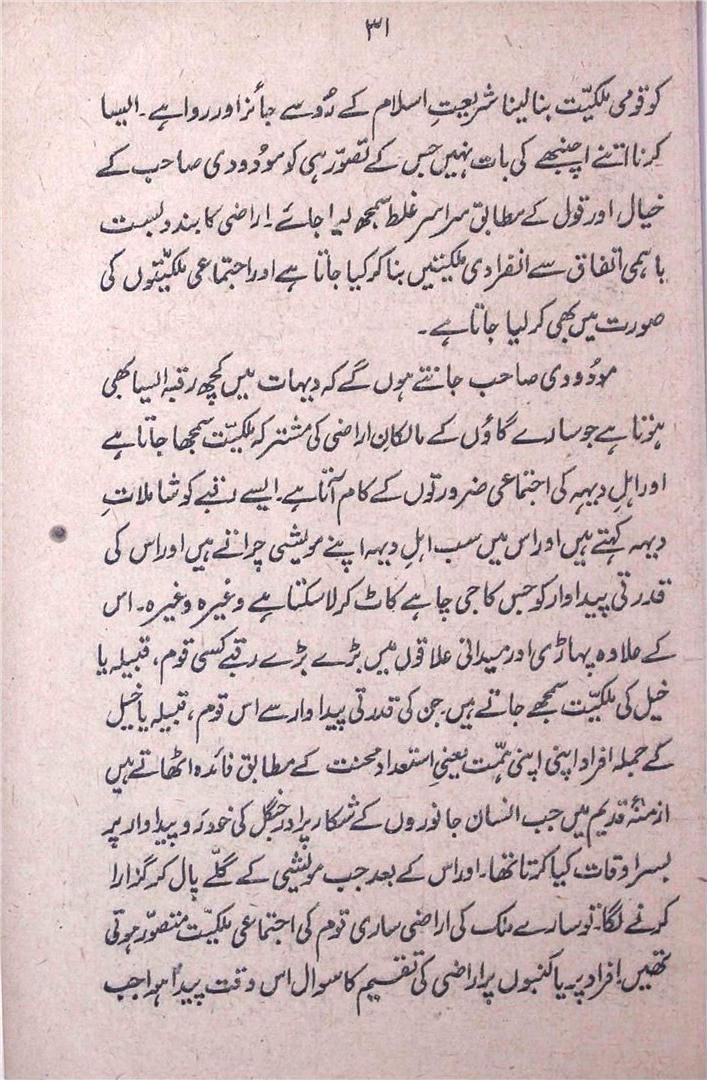 ۳۱
کو قومی ملکیّت بنا لینا شریعتِ اسلام کے رُو سے جائز اور روا ہے۔ ایسا
کرنا اتنے اچنبھے کی بات نہیں جس کے تصوّر ہی کو مودُودی صاحب کے
خیال اور قول کے مطابق سراسر غلط سمجھ لیا جائے۔ اراضی کا بندوبست
باہمی اتفاق سے انفرادی ملکیتیں بنا کر کیا جاتا ہے اور اجتماعی ملکیّتوں کی
صورت میں بھی کر لیا جاتا ہے۔
مودُودی صاحب جانتے ہوں گے کہ دیہات میں کچھ رقبہ ایسا بھی
ہوتا ہے جو سارے گاؤں کے مالکانِ اراضی کی مشترکہ ملکیّت سمجھا جاتا ہے
اور اہلِ دیہہ کی اجتماعی ضرورتوں کے کام آتا ہے۔ ایسے رقبے کو شاملاتِ
دیہہ کہتے ہیں اور اس میں سب اہلِ دیہہ اپنے مویشی چراتے ہیں اور اس کی
قدرتی پیداوار کو جس کا جی چاہے کاٹ کر لا سکتا ہے وغیرہ وغیرہ۔ اس
کے علاوہ پہاڑی اور میدانی علاقوں میں بڑے بڑے رقبے کسی قوم، قبیلہ یا
خیل کی ملکیّت سمجھے جاتے ہیں۔ جن کی قدرتی پیداوار سے اس قوم، قبیلہ یا خیل
کے جملہ افراد اپنی اپنی ہمّت یعنی استعداد محنت کے مطابق فائدہ اٹھاتے ہیں
ازمنۂ قدیم میں جب انسان جانوروں کے شکار پر اور جنگل کی خود رَو پیداوار پر
بسر اوقات کیا کرتا تھا۔ اور اس کے بعد جب مویشی کے گلّے پال کر گزارا
کرنے لگا۔ تو سارے ملک کی اراضی ساری قوم کی اجتماعی ملکیّت متصوّر ہوتی
تھیں۔ افراد پر یا کنبوں پر اراضی کی تقسیم کا سوال اس وقت پیدا ہوا جب